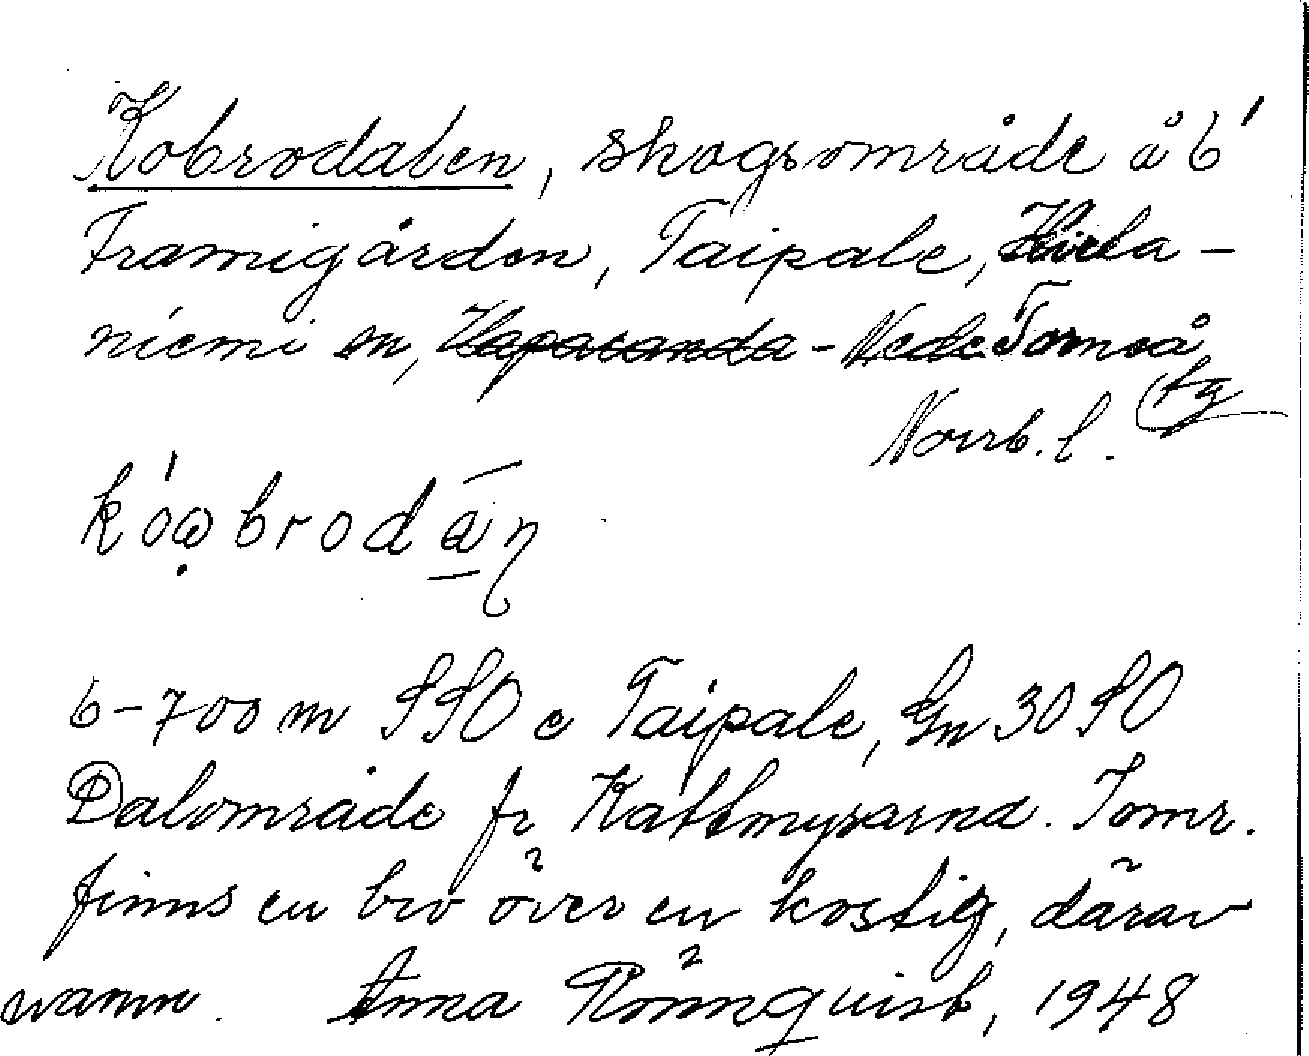 Kobrodalen, skogsområde å b'
Framigården, Taipale, Hieta-
niemi sn, Haparanda - Neder Torneå
tg
Norrb. l.
kóobrodān
6-700 m SSO e Taipale, Gn 30 SO
Dalområde fr Kattmyrarna. Iomr.
finns en bro över en kostig, därav
namn. Anna Rönnquist, 1948